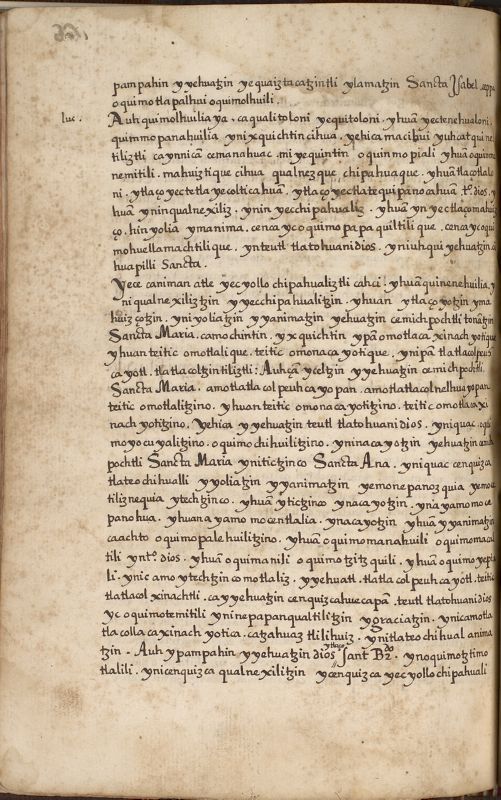 pampahin yyehuatzin yequaiztacatzintli ylamatzin Sancta Ysabel
oquimotlapalhui oquimolhuili.
luc. Auh quimolhuilia ya, caqualitoloni yequitoloni. yhuã yectenehualoni.
quimmopanahuilia ynixquichtin cihua. yehica macihui yuhcatqui ne
tiliztli caynnicã cemanahuac. miyequintin oquinmopiali yhuã oquimo
nemitili. mahuiztique cihua qualnezque, chipahuaque. yhuã tlaçotlalo
ni. ytlaço yectetlayecolticahuã. ytlaço yectlatequipanocahuã tº. dios. y
huã yninqualnexiliz. ynin yecchipahualiz. yhuã yn yectlaçomahuiz
ço. hin yolia ymanima. cenca yc oquimopapaquiltilique. cenca yc oqui
mohuellamachtilique. ynteutl tlatohuanidios. yniuhqui yehuatzin ci
huapilli Sancta.
Yece caniman atle yecyollochipahualiztli cahci. yhuã quinenehuilia, y
niqualnexiliztzin yyecchipahualitzin. yhuan ytlaçoyotzin yma
huizçotzin. yniyoliatzin yyanimatzin yehuatzin cemichpochtli tonãtzin
Sancta Maria. camochintin. yxquichtin ypã omotlaca xinachyotique
yhuan teitic omotlalique. teitic omonacayotique. ynipã tlatlacolpeuh
cayotl. tlatlacoltzintiliztli: Auhçã yceltzin yyehuatzin cemichpochtli.
Sancta Maria. amotlatlacolpeuhcayopan. amotlatlacolnelhuayopan
teitic omotlalitzino. yhuan teitic omonacayotitzino. teitic omotlacaxi
nachyotitzino. Yehica yyehuatzin teutl tlatohuani dios. yniquac oqui
moyocuyalitzino. oquimochihuilitzino. yninacayotzin yehuatzin cemich
pochtli Sancta Maria ynitictzinco Sancta Ana. yniquac cenquizca
tlateochihualli yyoliatzin yyanimatzin yemonepanozquia yemoce
tiliznequia ytechtzinco. yhuã yticzinco ynacayotzin. ynayamomoce
panohua. yhuan ayamo mocentlalia. ynacayotzin yhuã yyanimatzin
caachto oquimopalehuilitzino. yhuã oquimomanahuili oquimomacal
tili yntº. dios. yhuã oquimanili oquimotzitzquili. yhuã oquimoyepia
li. ynic amo ytechtzinco motlaliz. yyehuatl. tlatlacolpeuhcayotl. teitic
tlatlacolxinachtli. cayyehuatzin cenquizcahuecapã. teutl tlatohuanidios
yc oquimotemitili yninepapanqualtilitzin ygraciatzin. ynicamotla
tlacollacaxinachyotica. catzahuaztlilihuiz. ynitlateochihual anima
tzin. Auh ypampahin yyehuatzin dios ytlaço Sant Bdo. ynoquimotztimo
tlalili. ynicenquizca qualnexilitzin ycenquizca yecyollochipahuali